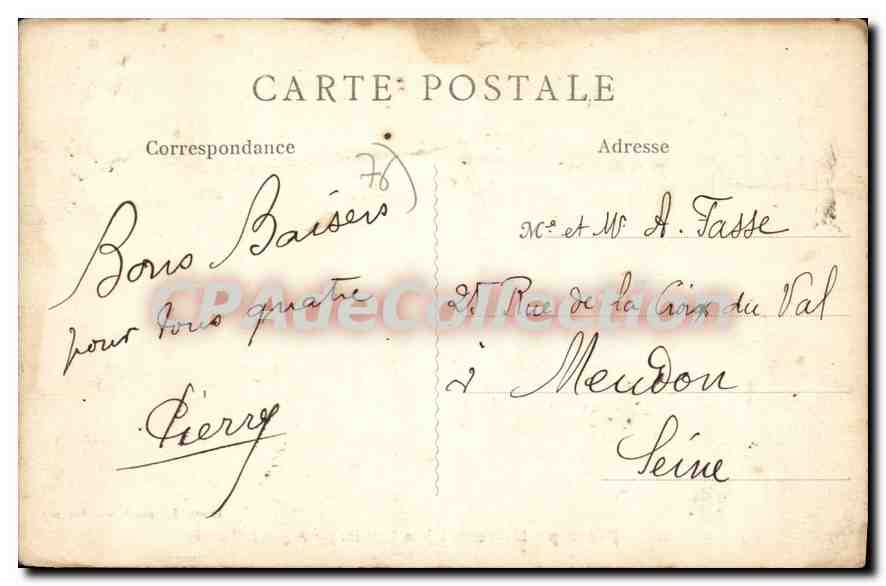 CARTE POSTALE
Correspondance
Adresse
76
Bons Baisers
pour tous quatre
Pierry
Me et Mr A. Fasse
25 Rue de la Croix du Val
à Meudon
Seine
CPAdeCollection